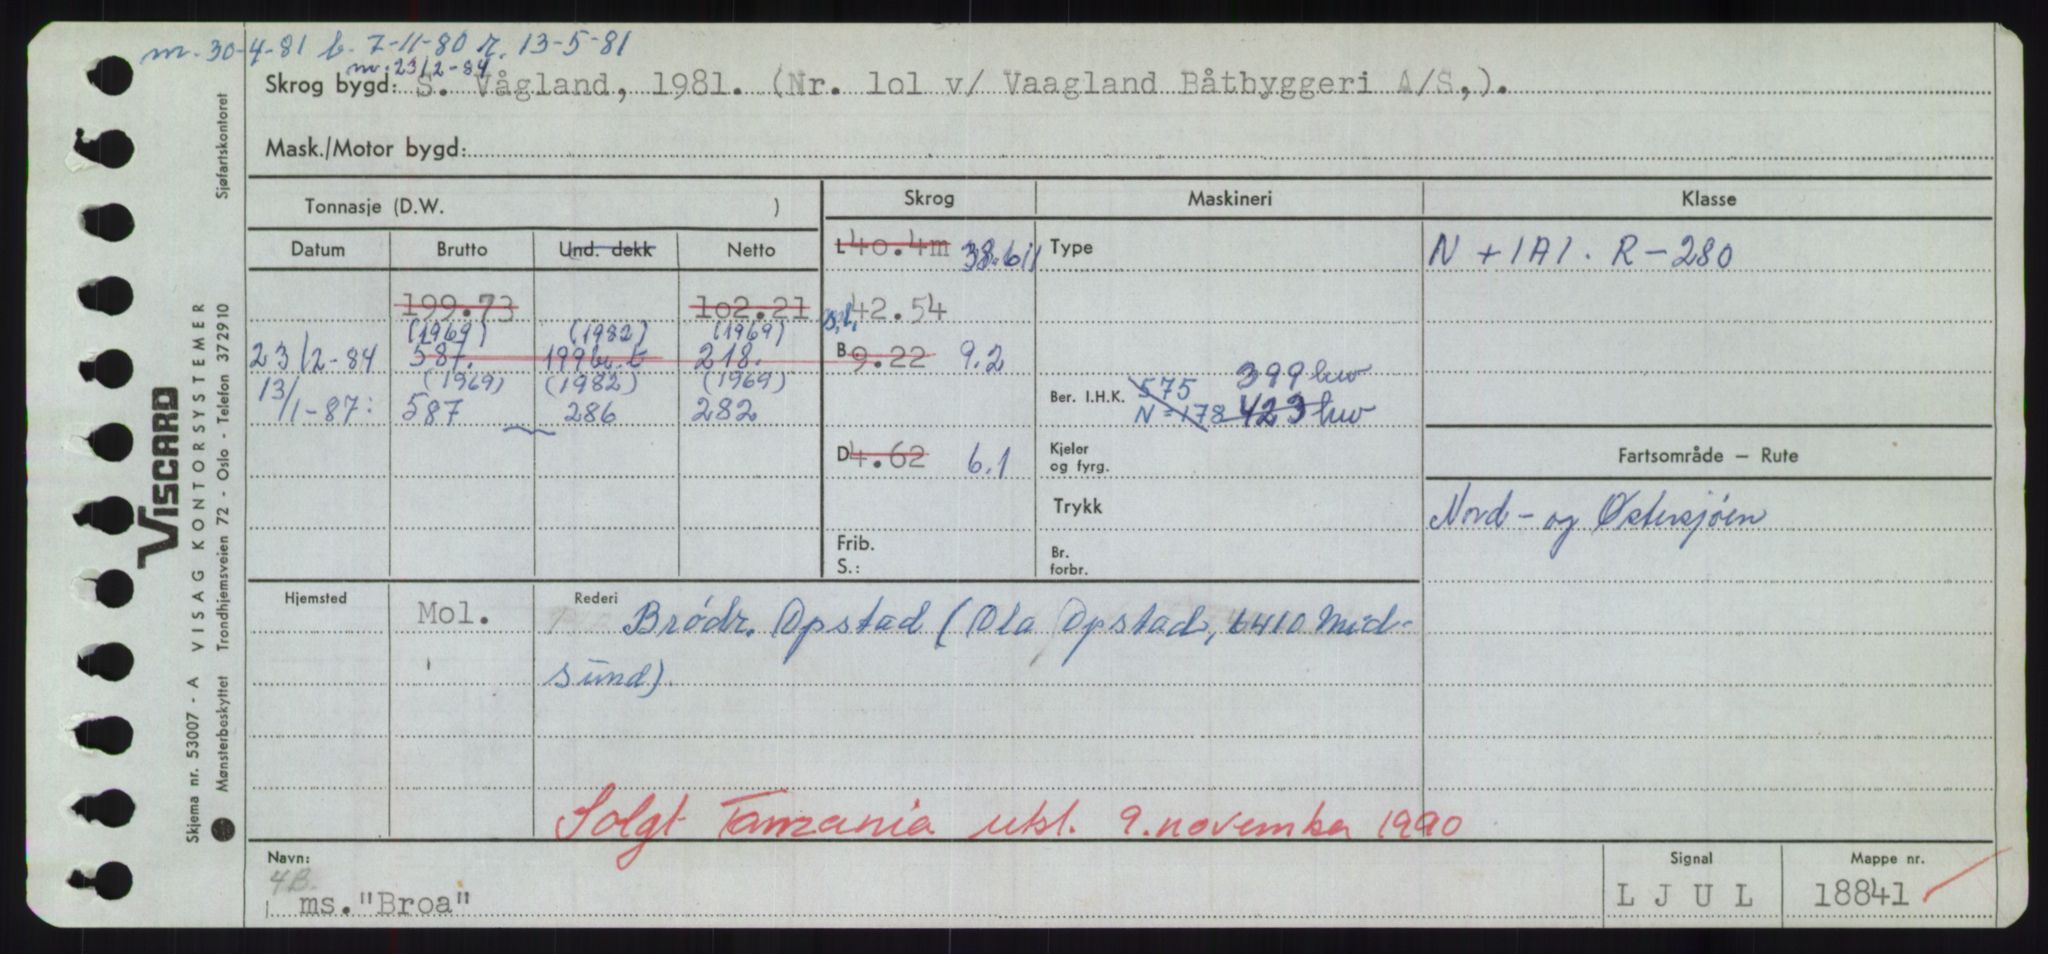 m. 30-4-81 b. 7-11-80 r. 13-5-81
m. 23/2-84
Skrog bygd: S. Vågland, 1981. (Nr. lol v/ Vaagland Båtbyggeri A/S,).
Mask./Motor bygd:
Tonnasje (D.W. )
Skrog Maskineri Klasse
Datum Brutto Und. dekk Netto
L 40.4m 38.611 Type N + 1A1. R-280
199.73 102.21 s.l. 42.54
(1969) (1982) (1969)
23/2-84 587. 199 218. B 9.22 9.2
(1969) (1982) (1969)
13/1-87: 587 286 282
Ber. I.H.K. 575 399 kw
N=178 423 kw
D 4.62 6.1
Kjeler
og fyrg.
Fartsområde — Rute
Trykk
Nord- og Østersjøen
Frib.
S.:
Br.
forbr.
Hjemsted Mol. Rederi Brødr. Opstad (Ola Opstad, 6410 Mid-
sund).
Solgt Tanzania utsl. 9. november 1990
Navn: Signal Mappe nr.
4B.
ms."Broa" L J U L 18841
VISCARD
Skjema nr. 53007 - A VISAG KONTORSYSTEMER
Mønsterbeskyttet Trondhjemsveien 72 - Oslo - Telefon 372910 Sjøfartskontoret